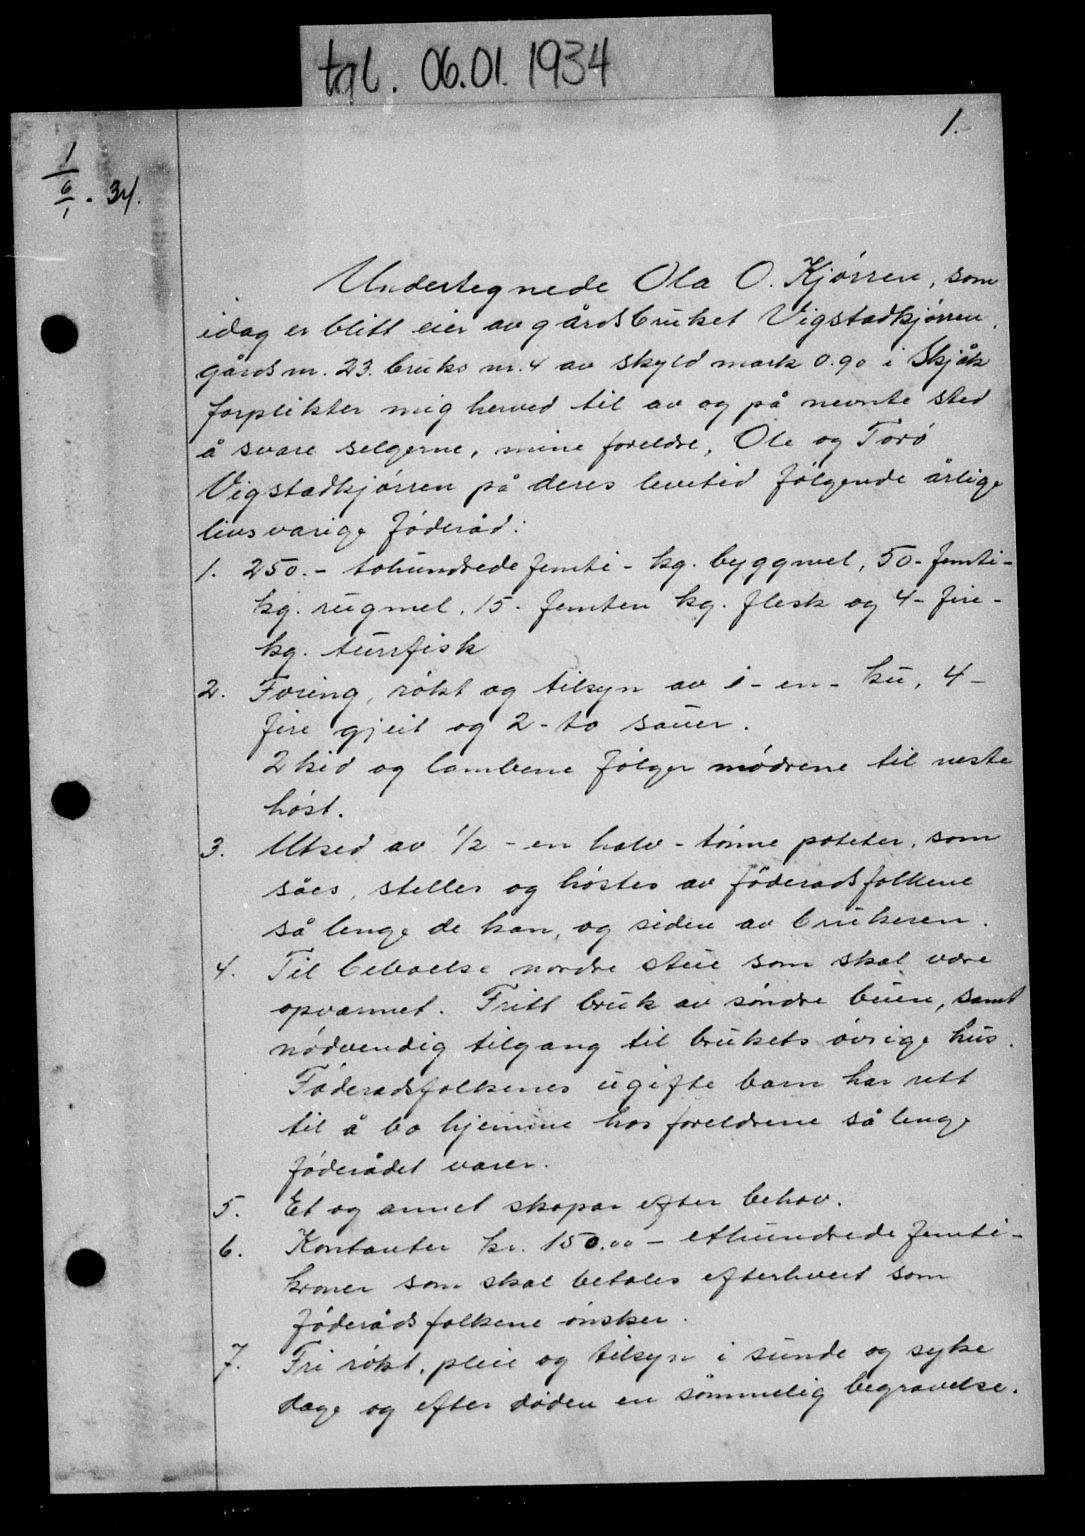 tgl. 06.01.1934
1.
1
6/1 - 34.
Undertegnede Ola O. Kjørren, som
idag er blitt eier av gårdsbruket Vigstadkjørren,
gårds nr. 23. bruks nr. 4 av skyld mark 0.90 i Skjåk
forplikter mig herved til av og på nevnte sted
å svare selgerne, mine foreldre, Ole og Torø
Vigstadkjørren på deres levetid følgende årlige
livsvarige føderåd:
1. 250.- tohundrede femti - kg. byggmel, 50- femti-
kg. rugmel, 15- femten kg. flesk og 4- fire-
kg. turrfisk
2. Foring, røkt og tilsyn av 1- en- ku, 4-
fire gjeit og 2- to sauer.
2 kid og lambene følger mødrene til neste
høst.
3. Utsed av 1/2 - en halv - tønne poteter, som
såes, stelles og høstes av føderadsfolkene
så lenge de kan, og siden av brukeren.
4. Til beboelse nordre stue som skal være
opvarmet. Fritt bruk av søndre buen, samt
nødvendig tilgang til brukets øvrige hus.
Føderadsfolkenes ugifte barn har rett
til å bo hjemme hos foreldrene så lenge
føderådet varer.
5. Et og annet skopar efter behov.
6. Kontanter kr. 150.00 - ethundrede femti-
kroner som skal betales efterhvert som
føderådsfolkene ønsker.
7. Fri røkt, pleie og tilsyn i sunde og syke
dage og efter døden en sømmelig begravelse.